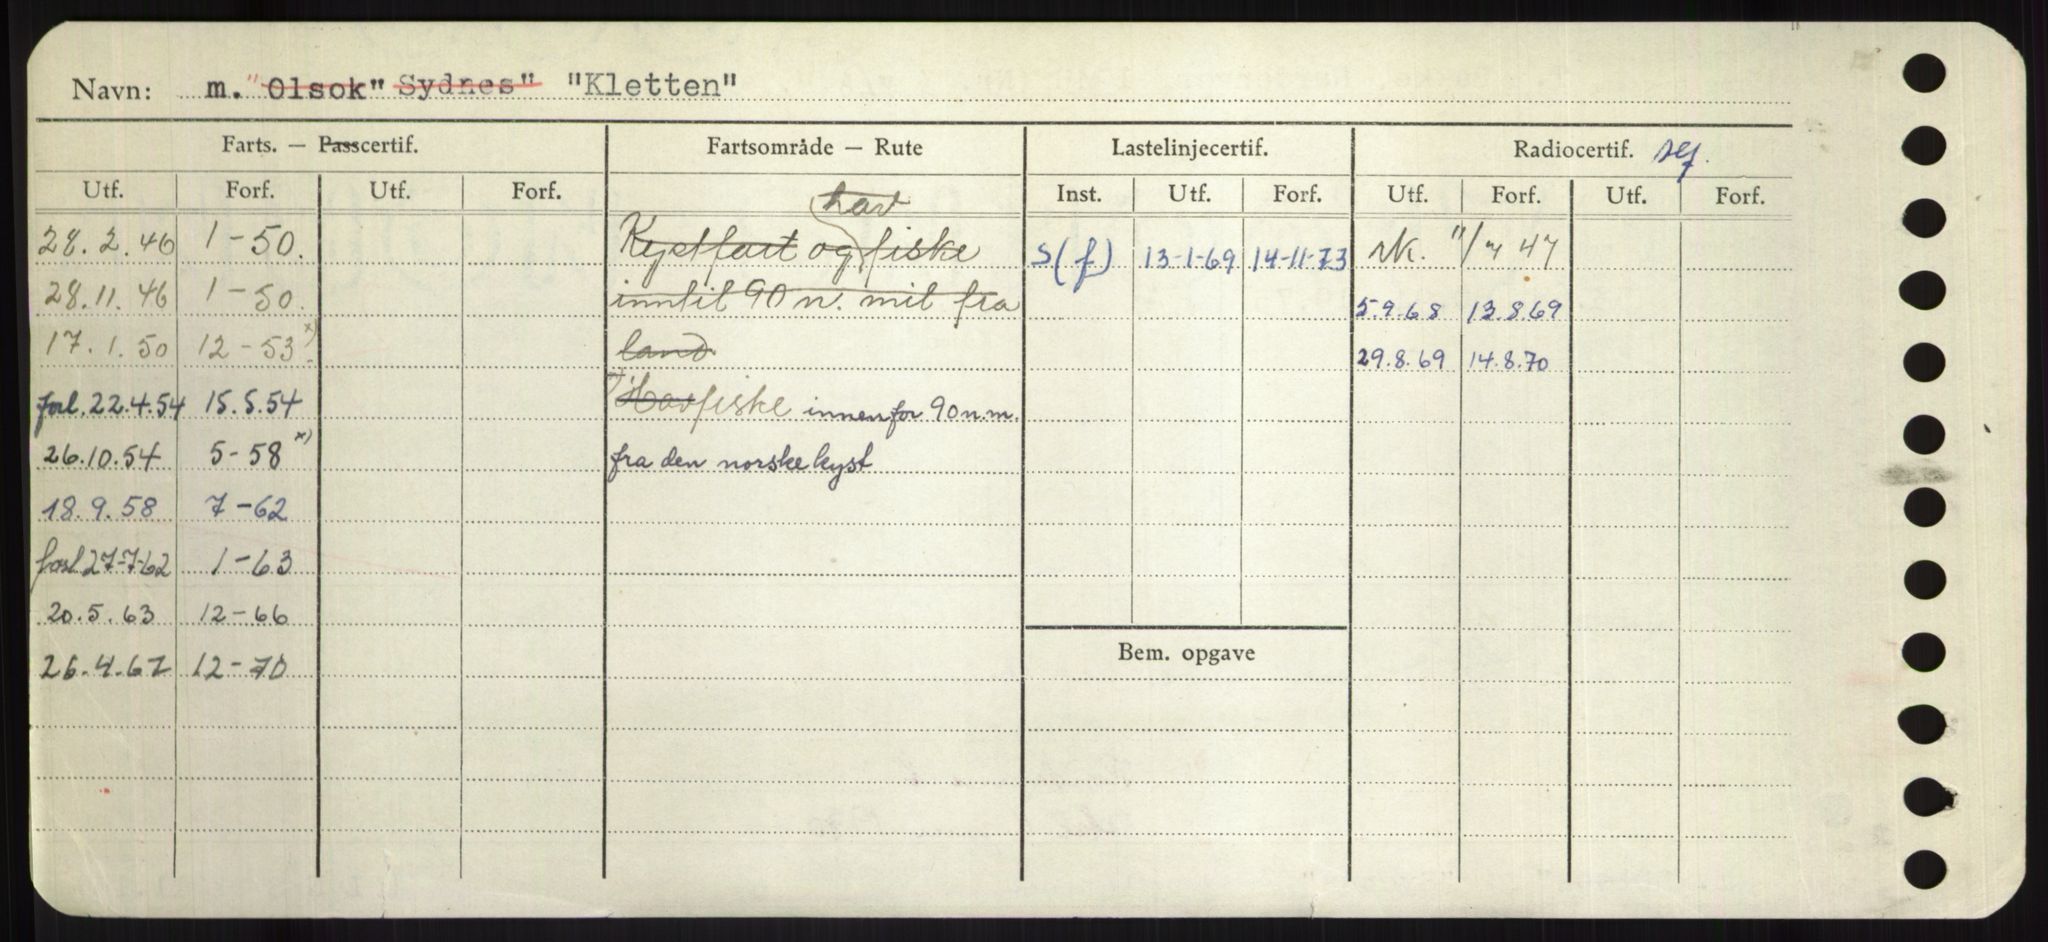 Navn: m. "Olsok" Sydnes" "Kletten"
Farts. — Passcertif. Fartsområde — Rute Lastelinjecertif. Radiocertif. tlf.
Utf. Forf. Utf. Forf. Inst. Utf. Forf. Utf. Forf. Utf. Forf.
hav
28.2.46 1-50. Kystfart og fiske S(f) 13-1-69 14-11-73 rk. 47
28.11.46 1-50. inntil 90 n. mil fra 5.9.68 13.8.69
17.1.50 12-53 x) land 29.8.69 14.8.70
forl. 22.4.54 15.5.54 Havfiske innenfor 90 n.m.
26.10.54 5-58 x) fra den norske kyst
18.9.58 7-62
forl 27-7-62 1-63
20.5.63 12-66
Bem. opgave
26.4.67 12-70